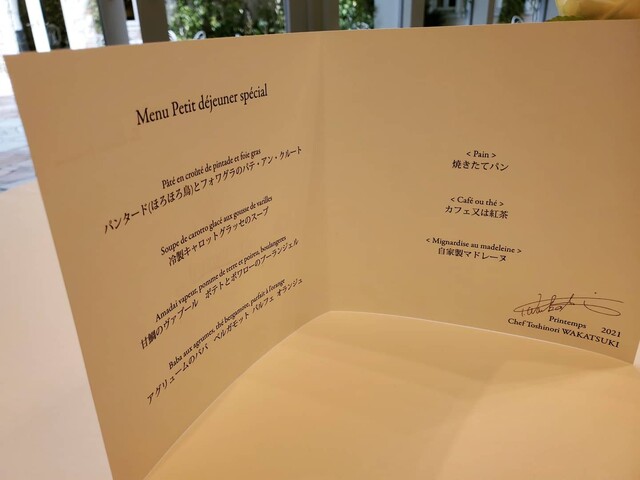 Menu Petit déjeuner spécial
Pâté en croûté de pintade et foie gras
パンタード(ほろほろ鳥)とフォワグラのパテ・アン・クルート
Soupe de carotto glacé aux gousse de vanilles
冷製キャロットグラッセのスープ
Amadai vapeur, pomme de terre et poireu boulangores
甘鯛のヴァプール ポテトとポワローのブーランジェル
Baba aux agrumes, thé bergamote, parfait à l'orange
アグリュームのババ ベルガモット パルフェ オランジュ
< Pain >
焼きたてパン
< Café ou thé >
カフェ又は紅茶
< Mignardise au madeleine >
自家製マドレーヌ
Printemps 2021
Chef Toshinori WAKATSUKI